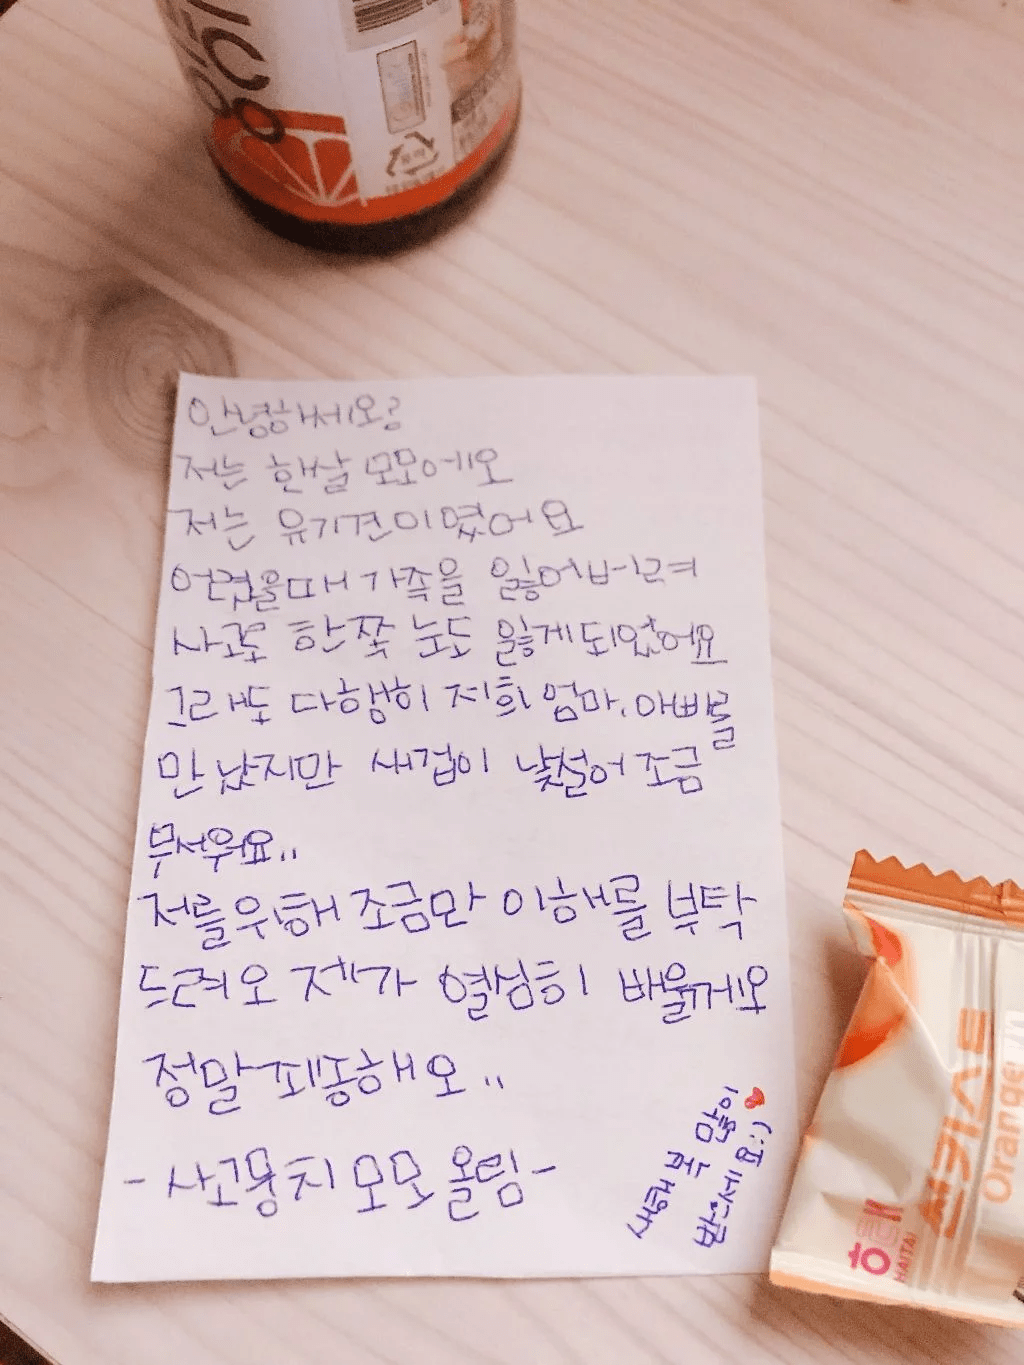 안녕하쎄오?
저는 한살 모모에오
저는 유기견이였어요
어렸을때 가족을 잃어버려
사고로 한쪽 눈도 잃게되었어요
그래도 다행히 저희 엄마.아빠를
만났지만 새집이 낯설어 조금
무서워요..
저를위해 조금만 이해를 부탁
드려오 제가 열심히 배울게요
정말 죄송해오..
-사고뭉치 모모 올림-
새해 복 많이
받으세요!:)
해태
HAITAI
썬키스트
Orange